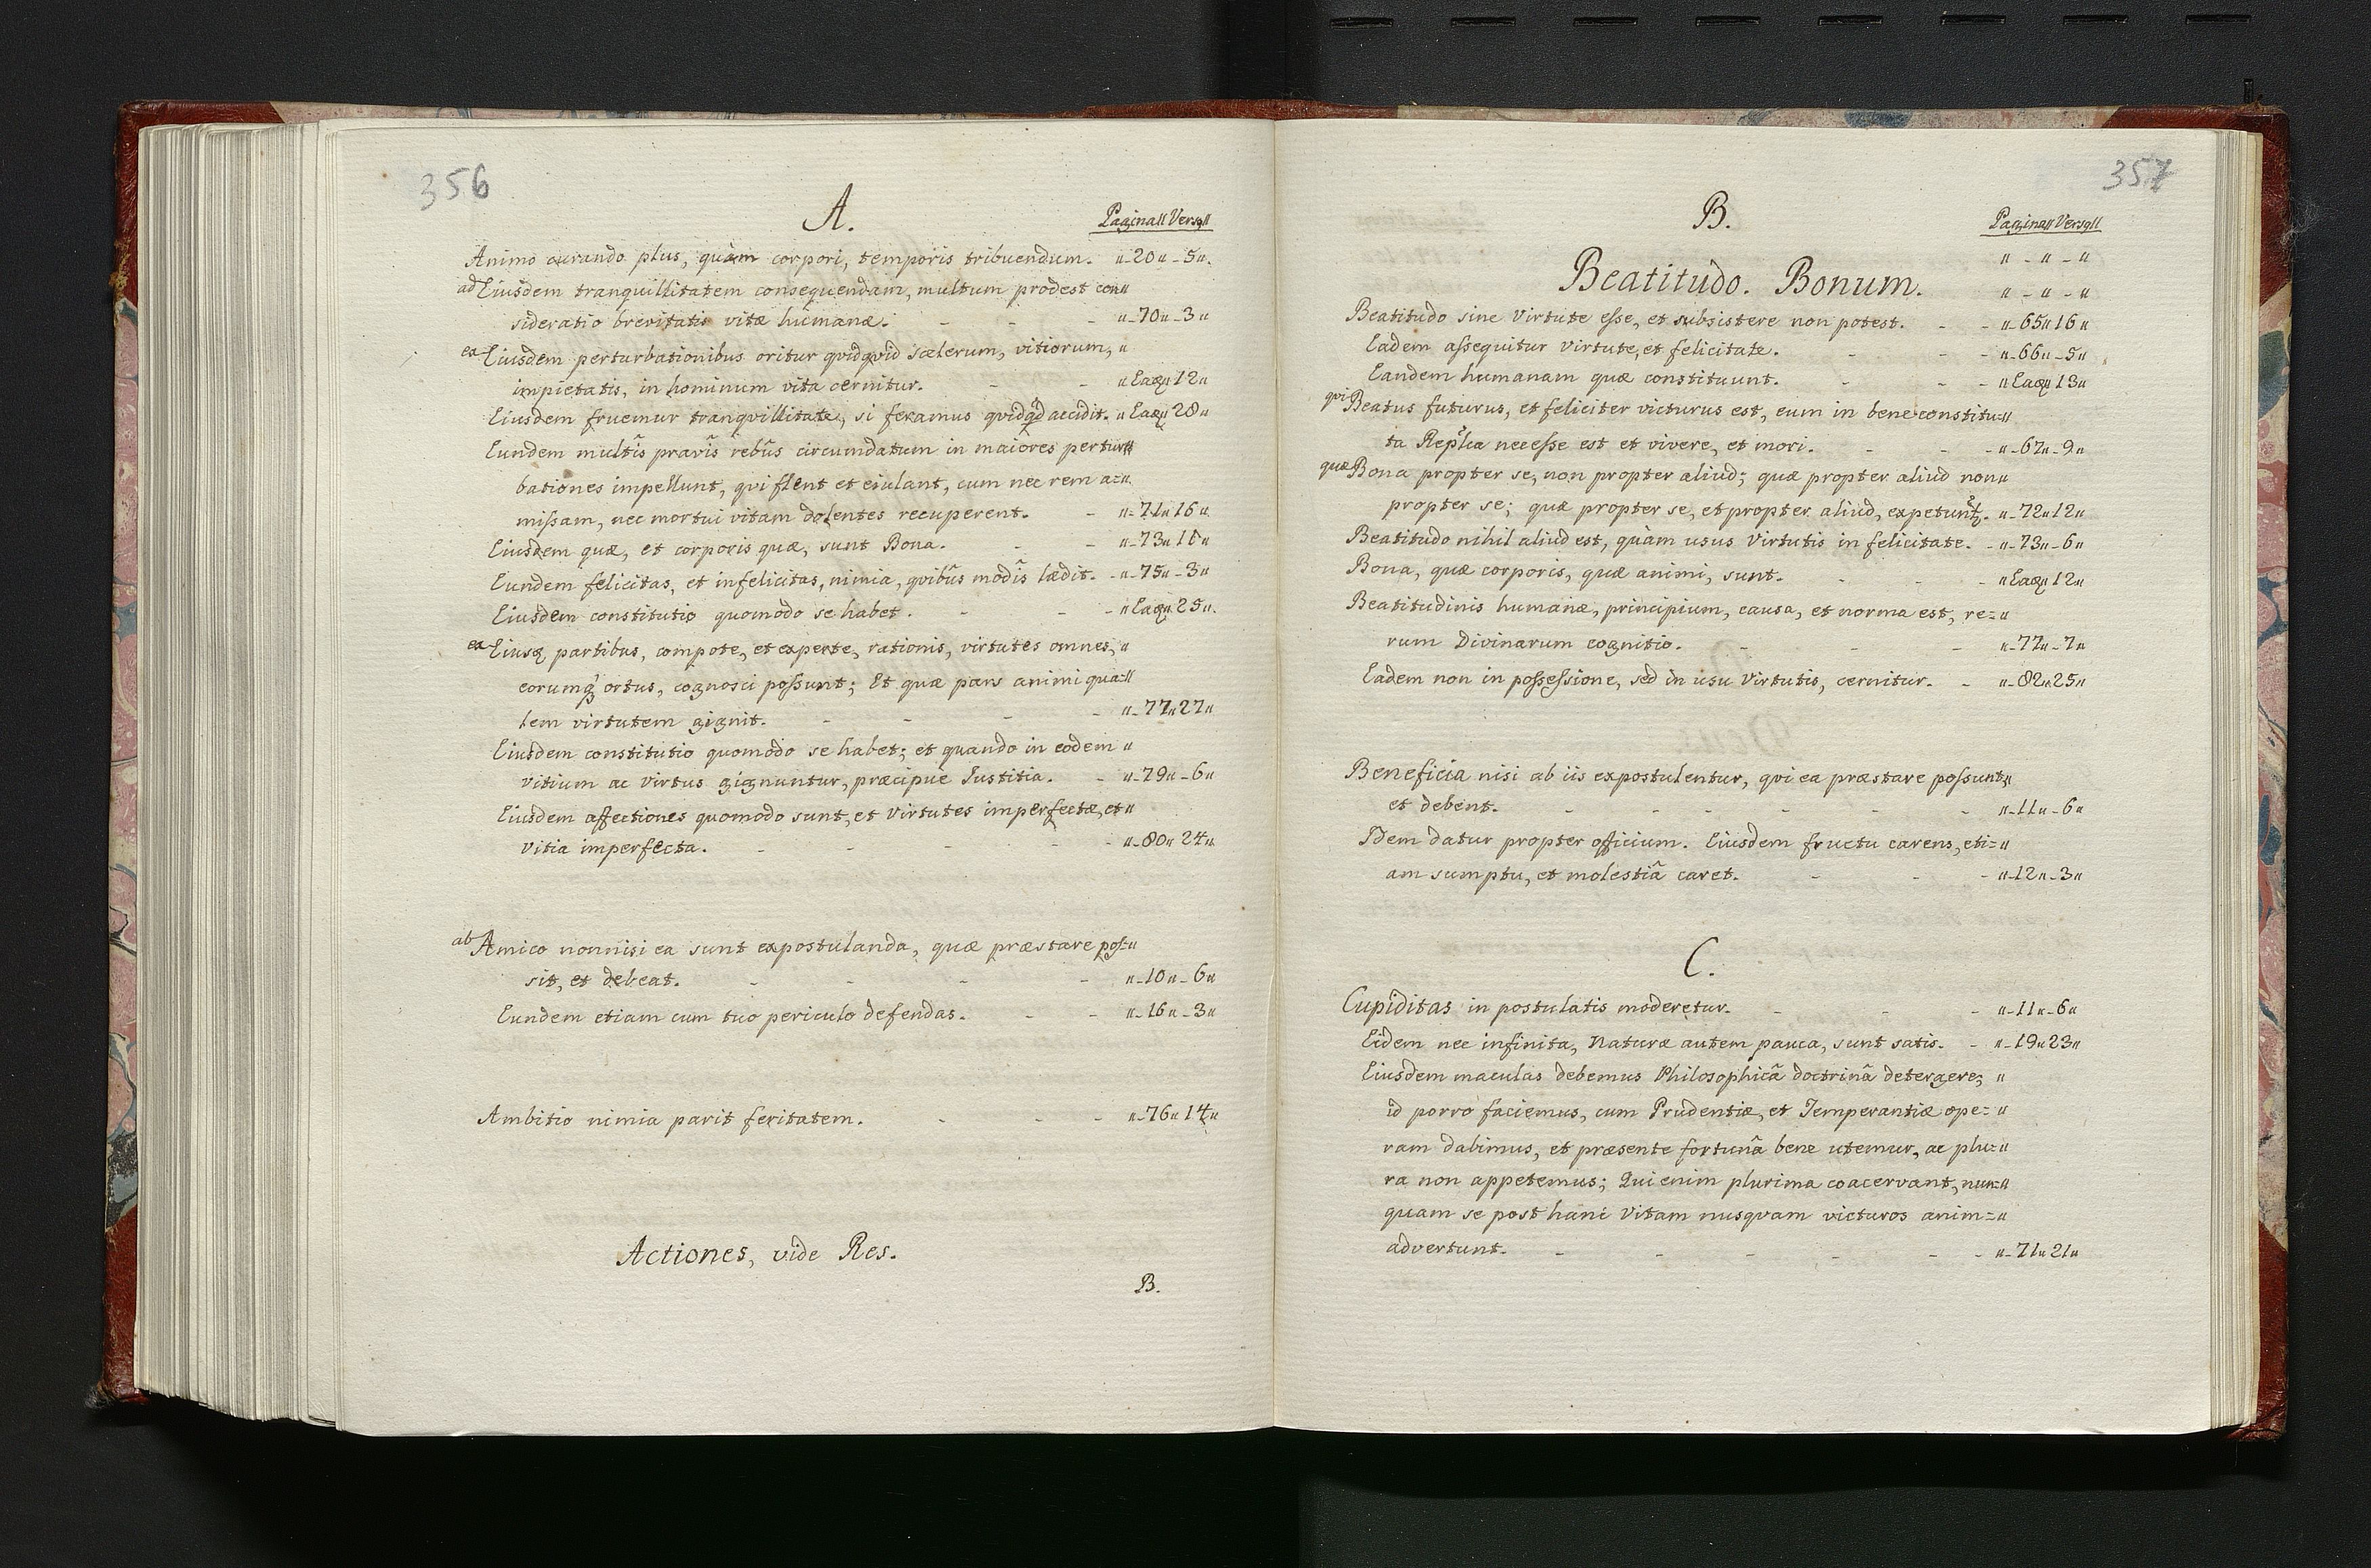 356
A.
Pagina〃 Versq〃
Animo curando plus, quàm corpori, temporis tribuendum. 〃-20〃-5〃.
ad Eiusdem tranquillitatem consequendam, multum prodest con〃
sideratio brevitatis vitæ humanæ. - - - 〃-70〃-3〃
ea Eiusdem perturbationibus oritur qvidqvid scelerum, vitiorum, 〃
impietatis, in hominum vita cernitur. - - 〃Eaq〃12〃
Eiusdem fruemur tranqvillitate, si feramus qvidqd accidit. 〃Eaq〃28〃
Eundem multîs pravîs rebûs circumdatum in maiores pertur〃
bationes impellunt, qvi flent et eiulant, cum nec rem a=〃
missam, nec mortui vitam dolentes recuperent. - 〃-71〃16〃
Eiusdem quæ, et corporis quæ, sunt Bona. - - 〃-73〃11〃
Eundem felicitas, et infelicitas, nimia, qvibûs modîs lædit. -〃-75〃-3〃
Eiusdem constitutio quomodo se habet. - - -〃Eaq〃25〃.
ex Eiusq partibus, compote, et experte, rationis, virtutes omnes, 〃
eorumq ortus, cognosci possunt; Et quæ pars animi qua=〃
lem virtutem gignit. - - - - 〃-77〃27〃
Eiusdem constitutio quomodo se habet; et quando in eodem 〃
vitium ac virtus gignuntur, præcipuè Iustitia. - 〃-79〃-6〃
Eiusdem affectiones quomodo sunt, et virtutes imperfectæ, et〃
vitia imperfecta. - - - - -〃-80〃24〃
ab Amico nonnisi ea sunt expostulanda, quæ præstare pos=〃
sit, et debeat. - - - - 〃-10〃-6〃
Eundem etiam cum tuo periculo defendas. - - 〃-16〃-3〃
Ambitio nimia parit feritatem. - - - 〃-76〃14〃
Actiones, vide Res.
B.
357
B.
Pagina〃 Versq〃
〃 - 〃 - 〃
Beatitudo. Bonum. 〃 - 〃 - 〃
Beatitudo sine Virtute esse, et subsistere non potest. - -〃-65〃16〃
Eadem assequitur virtute, et felicitate. - - -〃-66〃-5〃
Eandem humanam quæ constituunt. - - -〃Eaq〃13〃
qvi Beatus futurus, et feliciter victurus est, eum in bene constitu=〃
ta Replca necesse est et vivere, et mori. - - -〃-67〃-9〃
quæ Bona propter se, non propter aliud; quæ propter aliud non〃
propter se; quæ propter se, et propter aliud, expetunt. 〃-72〃12〃
Beatitudo nihil aliud est, quàm usus Virtutis in felicitate. -〃-73〃-6〃
Bona, quæ corporis, quæ animi, sunt. - - -〃Eaq〃12〃
Beatitudinis humanæ, principium, causa, et norma est, re=〃
rum Divinarum cognitio. - - - 〃-77〃-7〃
Eadem non in possessione, sed in usu Virtutis, cernitur. - 〃-82〃25〃
Beneficia nisi ab iis expostulentur, qvi ea præstare possunt,〃
et debent. - - - - - - 〃-11〃-6〃
Idem datur propter officium. Eiusdem fructu carens, eti=〃
am sumptu, et molestiâ caret. - - -〃-12〃-3〃
C.
Cupiditas in postulatis moderetur. - - -〃-11〃-6〃
Eidem nec infinita, Naturæ autem pauca, sunt satis. - 〃-19〃23〃
Eiusdem maculas debemus Philosophicâ doctrinâ detergere; 〃
id porro faciemus, cum Prudentiæ, et Temperantiæ ope=〃
ram dabimus, et præsente fortunâ bene utemur, ac plu=〃
ra non appetemus; Qui enim plurima coacervant, nun=〃
quam se post hanc vitam nusqvam victuros anim=〃
advertunt. - - - - - -〃-71〃21〃